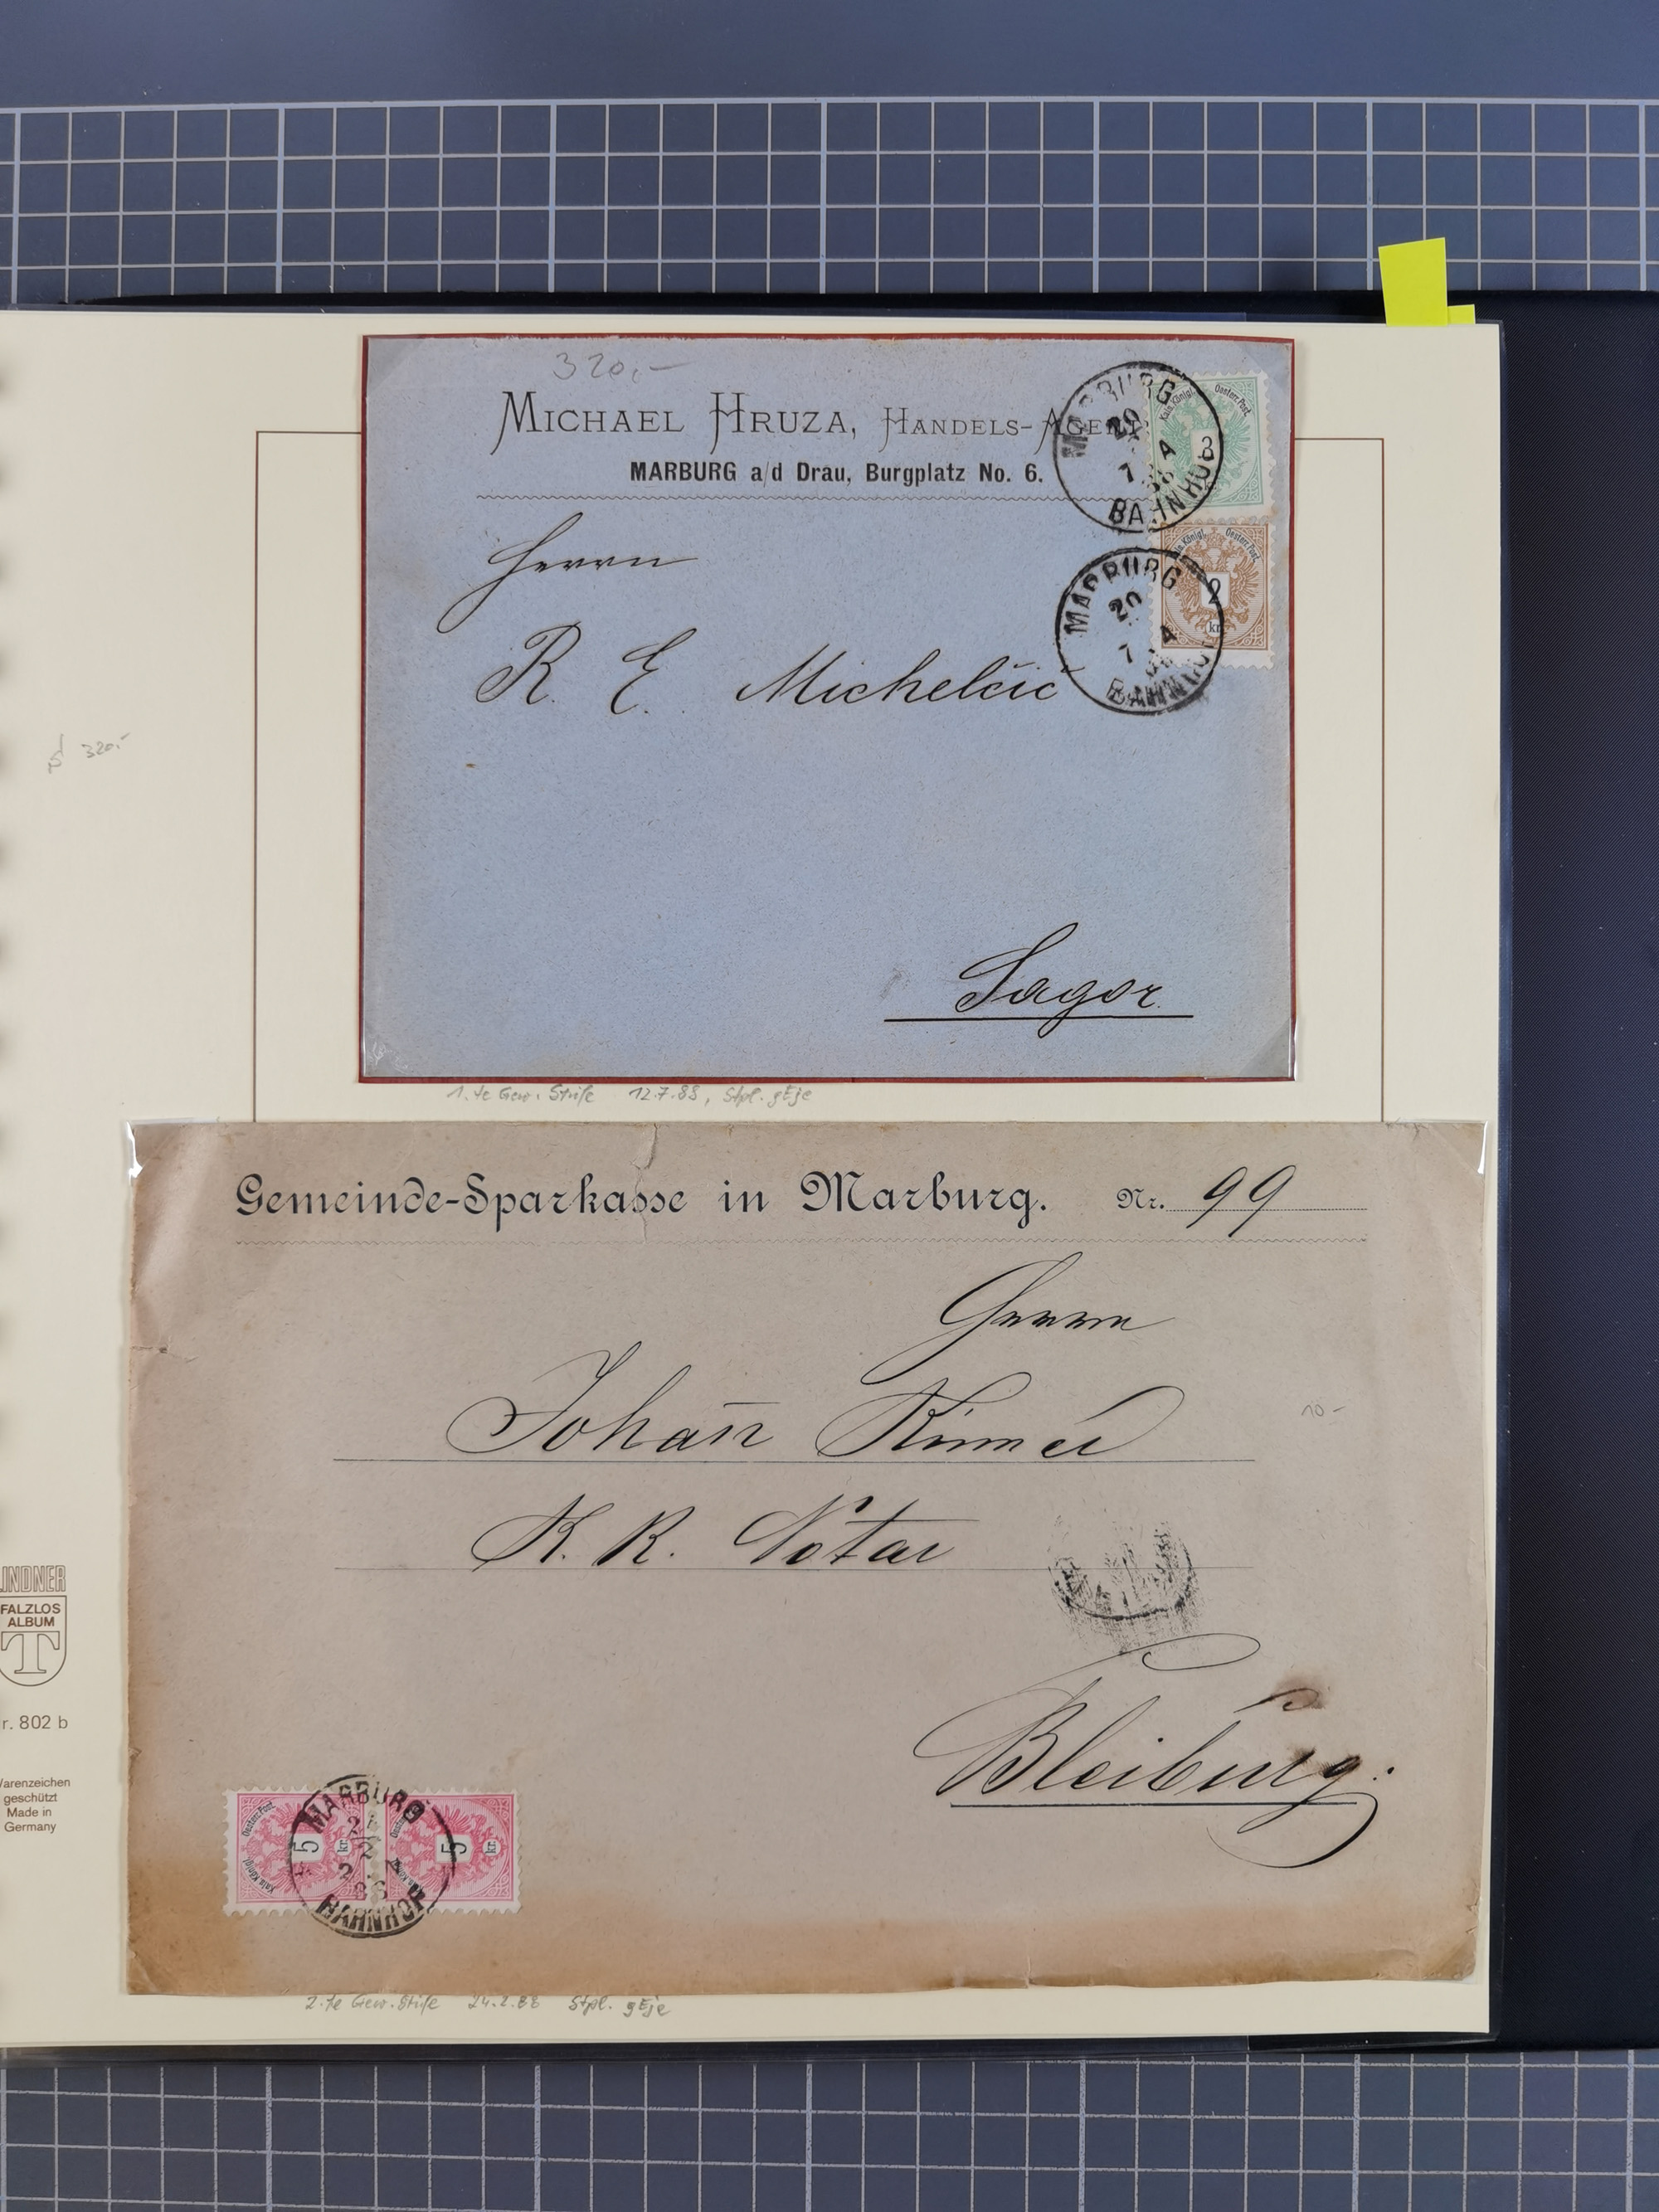 320,-
MICHAEL HRUZA, HANDELS-AGENT
MARBURG a/d Drau, Burgplatz No. 6.
MARBURG
20
7 4
88
BAHNHOF
Kais. Königl. Oesterr. Post.
3
MARBURG
20
7 4
BAHNHOF
Königl. Oesterr. Post.
2
kr.
Herrn
R. E. Michelčič
Sagor.
320.-
1.te Gew. Stufe 12.7.88, Stpl. gEje
Gemeinde-Sparkasse in Marburg. Nr. 99
Herrn
Johan̄
K. K. Notar
10-
Bleiburg.
MARBURG
2
BAHNHOF
Kais. Königl. Oesterr. Post.
5
kr.
5
kr.
2.te Gew. Stufe 24.2.88 Stpl. gEje
LINDNER
FALZLOS
ALBUM
T
r. 802 b
arenzeichen
geschützt
Made in
Germany